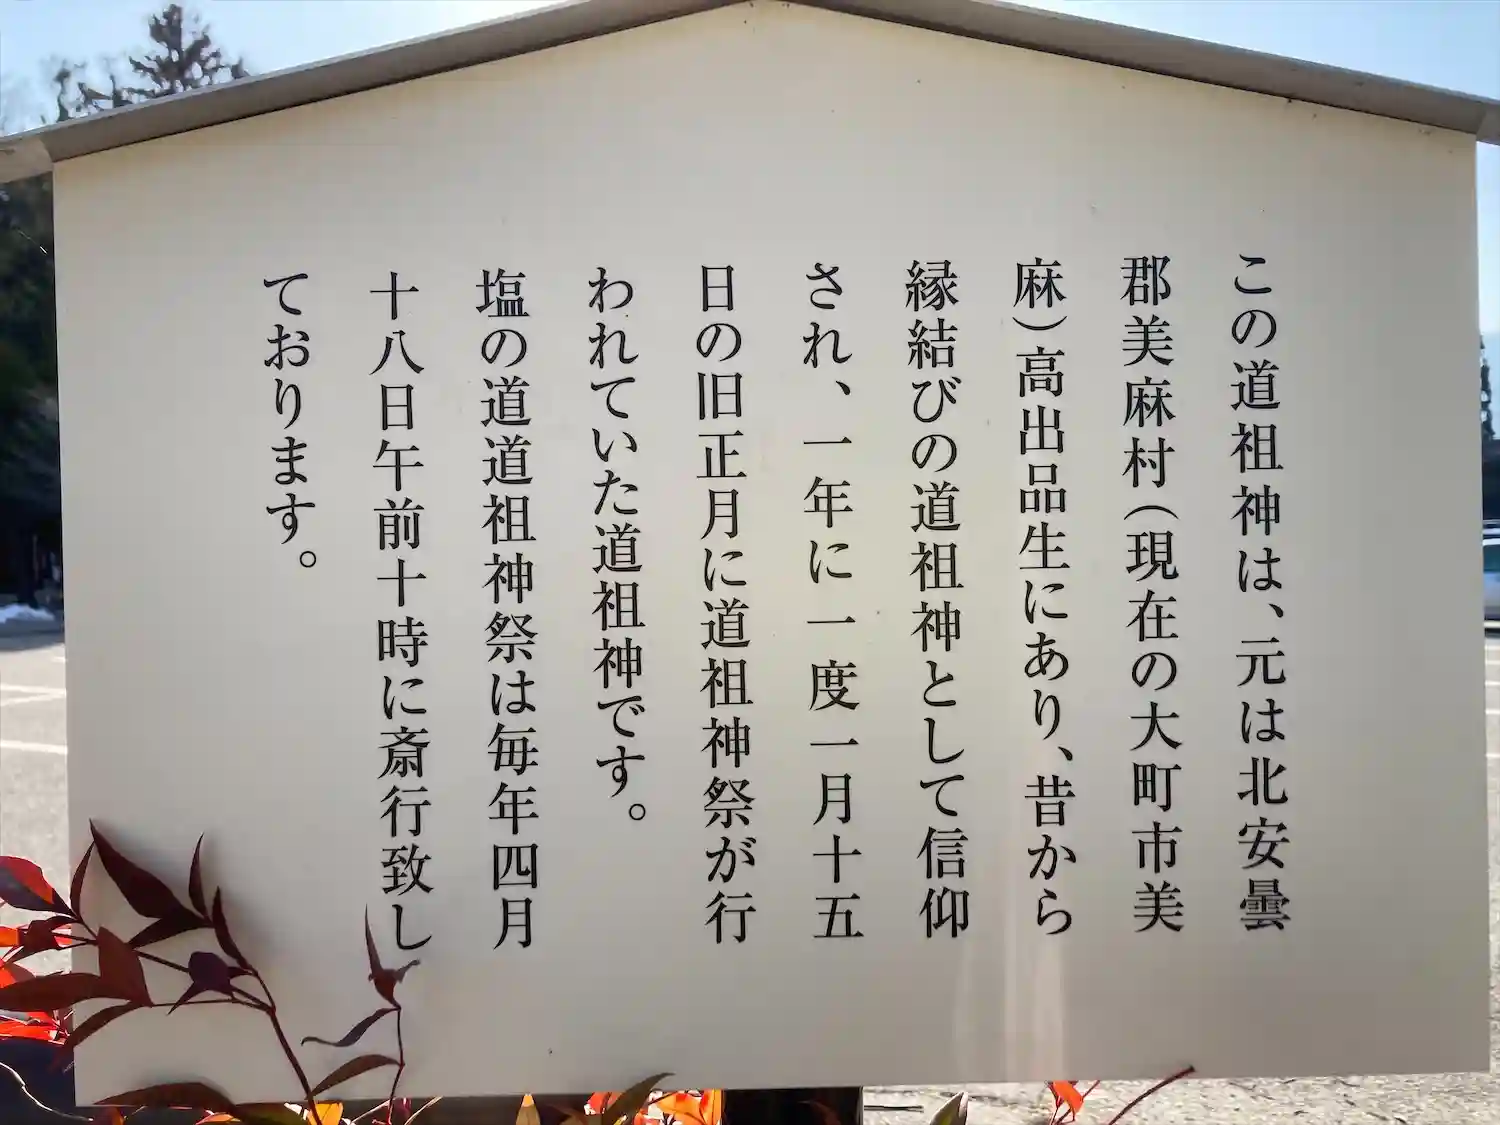 この道祖神は、元は北安曇
郡美麻村(現在の大町市美
麻)高出品生にあり、昔から
縁結びの道祖神として信仰
され、一年に一度一月十五
日の旧正月に道祖神祭が行
われていた道祖神です。
塩の道道祖神祭は毎年四月
十八日午前十時に斎行致し
ております。